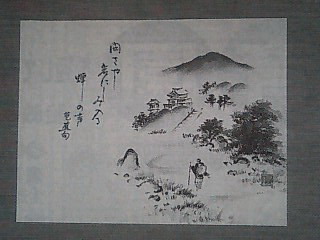 閑さや
岩にしみ入る
蝉の声
芭蕉句